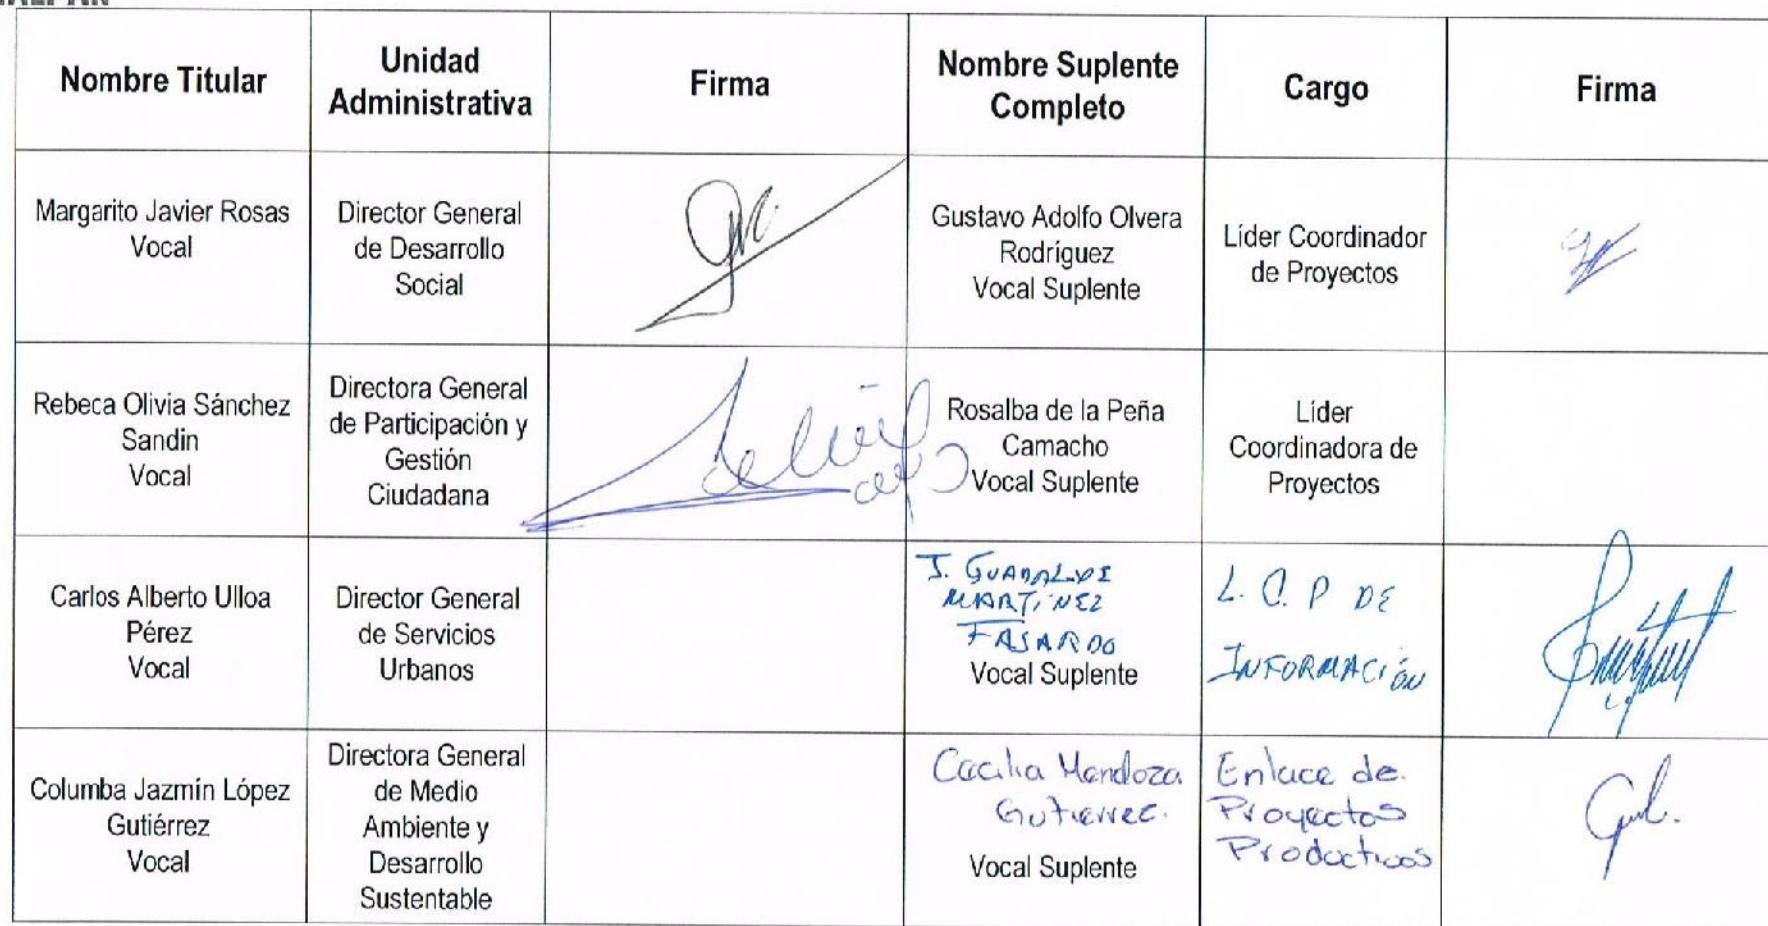 Nombre Titular
Unidad
Administrativa
Firma
Nombre Suplente
Completo
Cargo
Firma
Margarito Javier Rosas
Vocal
Director General
de Desarrollo
Social
Gustavo Adolfo Olvera
Rodríguez
Vocal Suplente
Líder Coordinador
de Proyectos
Rebeca Olivia Sánchez
Sandin
Vocal
Directora General
de Participación y
Gestión
Ciudadana
Rosalba de la Peña
Camacho
Vocal Suplente
Líder
Coordinadora de
Proyectos
Carlos Alberto Ulloa
Pérez
Vocal
Director General
de Servicios
Urbanos
J. GUADALUPE
MARTÍNEZ
FAJARDO
Vocal Suplente
L. C. P DE
INFORMACIÓN
Columba Jazmín López
Gutiérrez
Vocal
Directora General
de Medio
Ambiente y
Desarrollo
Sustentable
Cecilia Mendoza
Gutierrez.
Vocal Suplente
Enlace de
Proyectos
Productivos